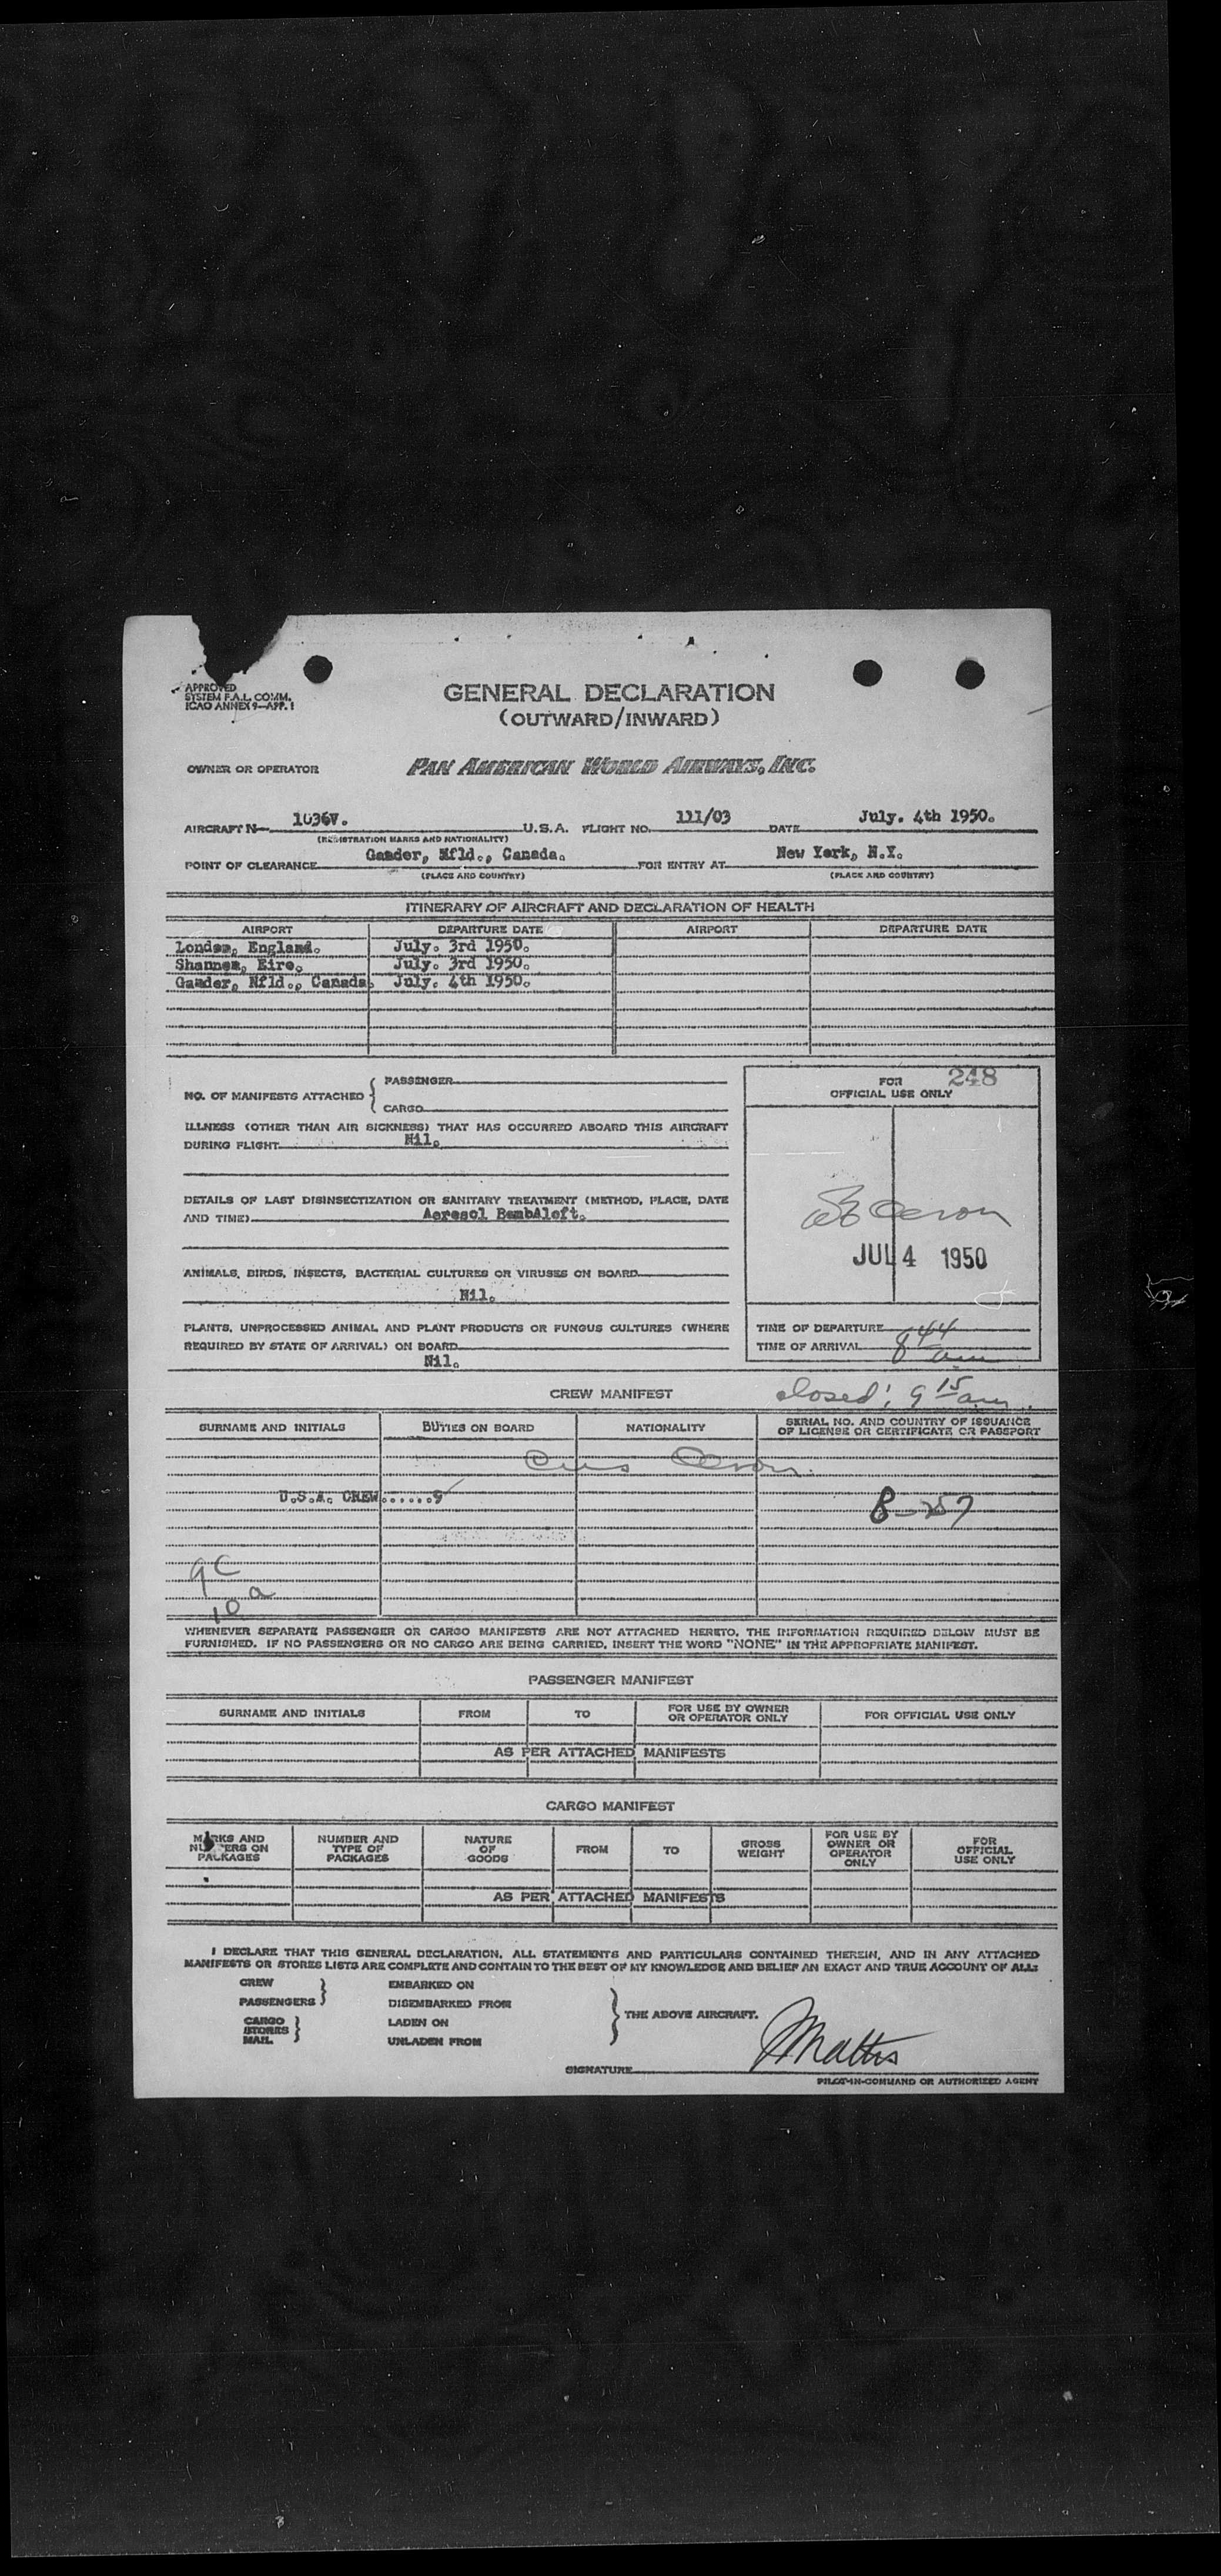 APPROVED
SYSTEM F.A.L. COMM.
ICAO ANNEX 9—APP. 1
GENERAL DECLARATION
(OUTWARD/INWARD)
OWNER OR OPERATOR PAN AMERICAN WORLD AIRWAYS, INC.
AIRCRAFT N— 1036V. U.S.A. FLIGHT NO. 111/03 DATE July. 4th 1950.
(REGISTRATION MARKS AND NATIONALITY)
POINT OF CLEARANCE Gander, Nfld., Canada. FOR ENTRY AT New York, N.Y.
(PLACE AND COUNTRY) (PLACE AND COUNTRY)
ITINERARY OF AIRCRAFT AND DECLARATION OF HEALTH
AIRPORT DEPARTURE DATE AIRPORT DEPARTURE DATE
London, England. July. 3rd 1950.
Shannon, Eire. July. 3rd 1950.
Gander, Nfld., Canada. July. 4th 1950.
NO. OF MANIFESTS ATTACHED { PASSENGER
CARGO
FOR 248
OFFICIAL USE ONLY
ILLNESS (OTHER THAN AIR SICKNESS) THAT HAS OCCURRED ABOARD THIS AIRCRAFT
DURING FLIGHT Nil.
DETAILS OF LAST DISINSECTIZATION OR SANITARY TREATMENT (METHOD, PLACE, DATE
AND TIME) Aeresol BombAloft.
JUL 4 1950
ANIMALS, BIRDS, INSECTS, BACTERIAL CULTURES OR VIRUSES ON BOARD
Nil.
PLANTS, UNPROCESSED ANIMAL AND PLANT PRODUCTS OR FUNGUS CULTURES (WHERE
REQUIRED BY STATE OF ARRIVAL) ON BOARD
Nil.
TIME OF DEPARTURE
TIME OF ARRIVAL 8 44 am
CREW MANIFEST closed: 9 15 am
SURNAME AND INITIALS DUTIES ON BOARD NATIONALITY SERIAL NO. AND COUNTRY OF ISSUANCE
OF LICENSE OR CERTIFICATE OR PASSPORT
U.S.A. CREW......9 8-257
9C
10 a
WHENEVER SEPARATE PASSENGER OR CARGO MANIFESTS ARE NOT ATTACHED HERETO, THE INFORMATION REQUIRED BELOW MUST BE
FURNISHED. IF NO PASSENGERS OR NO CARGO ARE BEING CARRIED, INSERT THE WORD "NONE" IN THE APPROPRIATE MANIFEST.
PASSENGER MANIFEST
SURNAME AND INITIALS FROM TO FOR USE BY OWNER
OR OPERATOR ONLY FOR OFFICIAL USE ONLY
AS PER ATTACHED MANIFESTS
CARGO MANIFEST
MARKS AND
NUMBERS ON
PACKAGES
NUMBER AND
TYPE OF
PACKAGES
NATURE
OF
GOODS
FROM
TO
GROSS
WEIGHT
FOR USE BY
OWNER OR
OPERATOR
ONLY
FOR
OFFICIAL
USE ONLY
AS PER ATTACHED MANIFESTS
I DECLARE THAT THIS GENERAL DECLARATION, ALL STATEMENTS AND PARTICULARS CONTAINED THEREIN, AND IN ANY ATTACHED
MANIFESTS OR STORES LISTS ARE COMPLETE AND CONTAIN TO THE BEST OF MY KNOWLEDGE AND BELIEF AN EXACT AND TRUE ACCOUNT OF ALL:
CREW
PASSENGERS } EMBARKED ON
DISEMBARKED FROM
CARGO
STORES
MAIL } LADEN ON
UNLADEN FROM
} THE ABOVE AIRCRAFT.
SIGNATURE
PILOT-IN-COMMAND OR AUTHORIZED AGENT